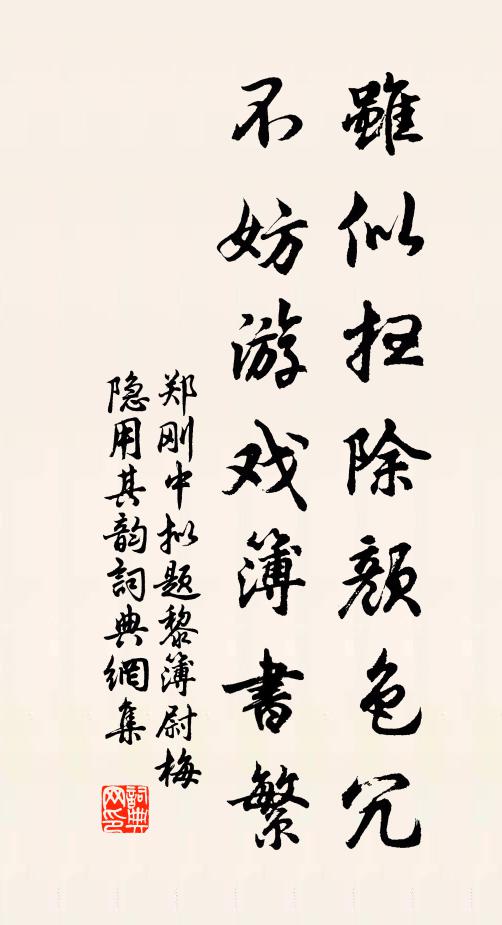 雖似扫除颜色冗
不妨游戏簿書繁
郑刚中拟题黎簿尉梅
隐用其韵詞典網集
詞典网印